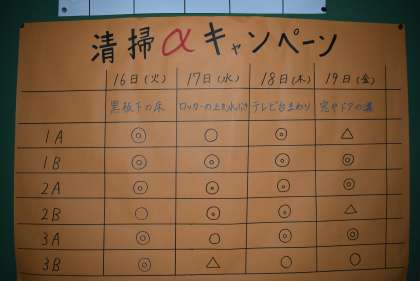 清掃αキャンペーン
16日(火) 17日(水) 18日(木) 19日(金)
黒板下の床 ロッカーの上と水ぶき テレビ台まわり 窓やドアの溝
1A ◎ ○ ◎ △
1B ◎ ◎ ◎ ◎
2A ◎ ◎ ◎ ◎
2B ○ ◎ ◎ △
3A ◎ ○ ◎ ◎
3B ◎ △ ○ ○